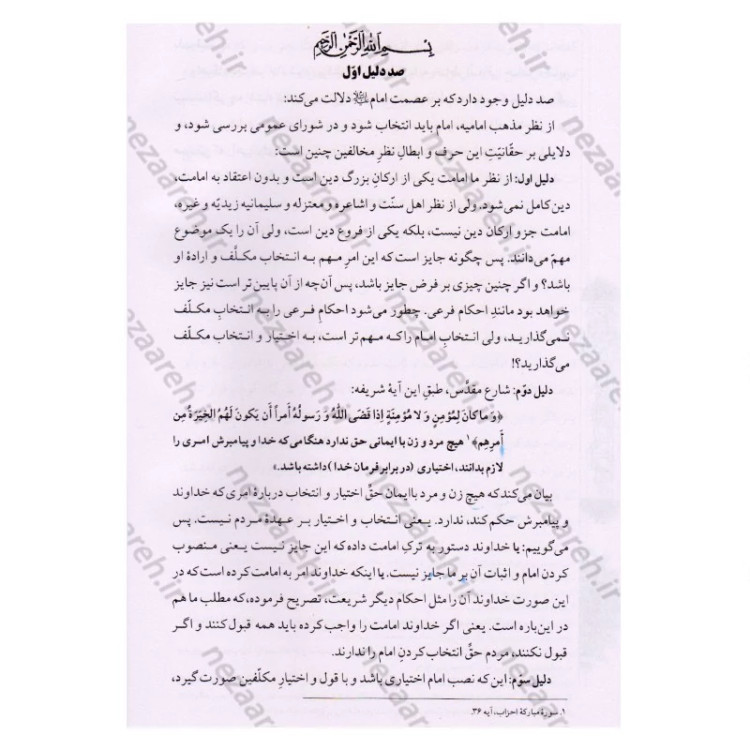 بسم الله الرحمن الرحیم
صد دلیل اوّل
صد دلیل وجود دارد که بر عصمت امام دلالت می‌کند:
از نظر مذهب امامیه، امام باید انتخاب شود و در شورای عمومی بررسی شود، و
دلایلی بر حقّانیّتِ این حرف و ابطال نظرِ مخالفین چنین است:
دلیل اول: از نظر ما امامت یکی از ارکانِ بزرگ دین است و بدون اعتقاد به امامت،
دین کامل نمی‌شود. ولی از نظر اهل سنّت و اشاعره و معتزله و سلیمانیه زیدیّه و غیره،
امامت جزو ارکان دین نیست، بلکه یکی از فروع دین است، ولی آن را یک موضوع
مهمّ می‌دانند. پس چگونه جایز است که این امرِ مـهم بـه انـتخاب مکـلّف و ارادهٔ او
باشد؟ و اگر چنین چیزی بر فرض جایز باشد، پس آن‌چه از آن پایین‌تر است نیز جایز
خواهد بود مانندِ احکام فرعی. چطور می‌شود احکامِ فرعی را بـه انـتخابِ مکـلّف
نـمی‌گذاریـد، ولی انتخابِ امام را کـه مـهم تـر است، بـه اخـتیار و انـتخاب مکـلّف
می‌گذارید؟!
دلیل دوّم: شارع مقدّس، طبقِ این آیهٔ شریفه:
﴿وَ ما کانَ لِمُؤمِنٍ وَ لا مُؤمِنَةٍ إذا قَضَی اللّهُ وَ رَسولُهُ أَمراً أَن یَکونَ لَهُمُ الخِیَرَةُ مِن
أَمرِهِم﴾ ۱ هیچ مرد و زن با ایمانی حق ندارد هنگامی که خدا و پیامبرش امـری را
لازم بدانند، اختیاری (در برابر فرمان خدا) داشته باشد.»
بیان می‌کند که هیچ زن و مرد باایمان حقِّ اختیار و انتخاب دربارهٔ امری که خداوند
و پیامبرش حکم کند، ندارد. یـعنی انـتخاب و اخـتیار بـر عـهدهٔ مـردم نـیست. پس
می‌گوییم: یا خداوند دستور به ترکِ امامت داده که این جـایز نـیست یـعنی مـنصوب
کردن امام و اثبات آن بر ما جایز نیست. یا اینکه خداوند امر به امامت کرده است که در
این صورت خداوند آن را مثل احکام دیگر شریعت، تصریح فرموده، که مطلب ما هم
در این باره است. یعنی اگر خداوند امامت را واجب کرده باید همه قبول کنند و اگـر
قبول نکنند، مردم حقِّ انتخاب کردنِ امام را ندارند.
دلیل سوّم: این که نصب امام اختیاری باشد و با قول و اختیارِ مکلّفین صورت گیرد،
۱. سورهٔ مبارکهٔ احزاب، آیه ۳۶.
nezaareh.ir